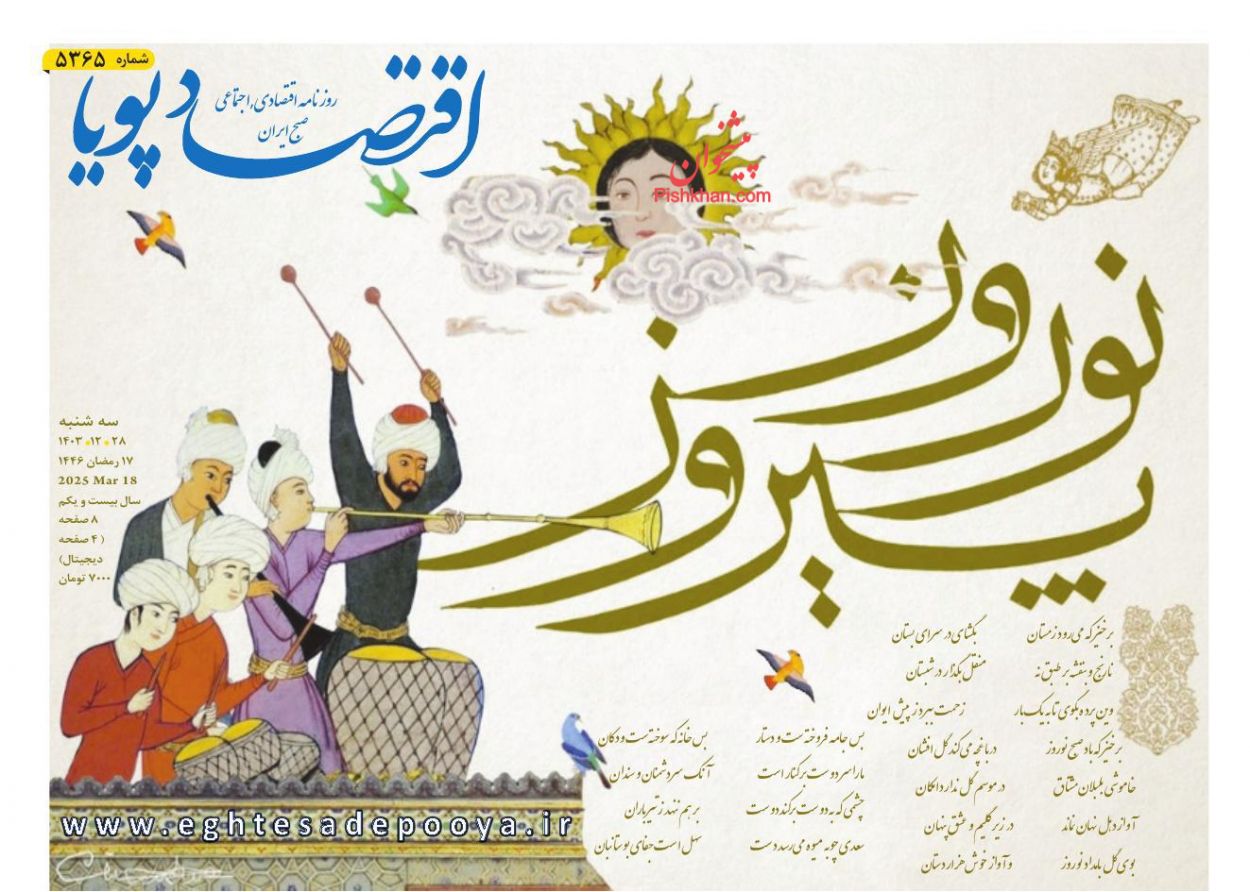 شماره ۵۳۶۵
اقتصاد پویا
روزنامه اقتصادی، اجتماعی
صبح ایران
پیشخوان
Pishkhan.com
نوروز
پیروز
سه شنبه
۱۴۰۳۰۱۲۰۲۸
۱۷ رمضان ۱۴۴۶
2025 Mar 18
سال بیست و یکم
۸ صفحه
( ۴ صفحه
دیجیتال)
۷۰۰۰ تومان
برخیز که می رود زمستان بگشای در سرای بستان
نارنج و بنفشه بر طبق نه منقل بگذار در شبستان
وین پرده بگوی تا به یک بار زحمت ببرد ز پیش ایوان
برخیز که باد صبح نوروز در باغچه می کند گل افشان
خاموشی بلبلان مشتاق در موسم گل ندارد امکان
آواز دهل نهان نماند در زیر گلیم و عشق پنهان
بوی گل بامداد نوروز و آواز خوش هزاردستان
بس جامه فروخته ست و دستار بس خانه که سوخته ست و دکان
ما را سر دوست بر کنار است آنک سر دشمنان و سندان
چشمی که به دوست برکند دوست بر هم ننهد ز تیرباران
سعدی چو به میوه می رسد دست سهل است جفای بوستانبان
www.eghtesadepooya.ir